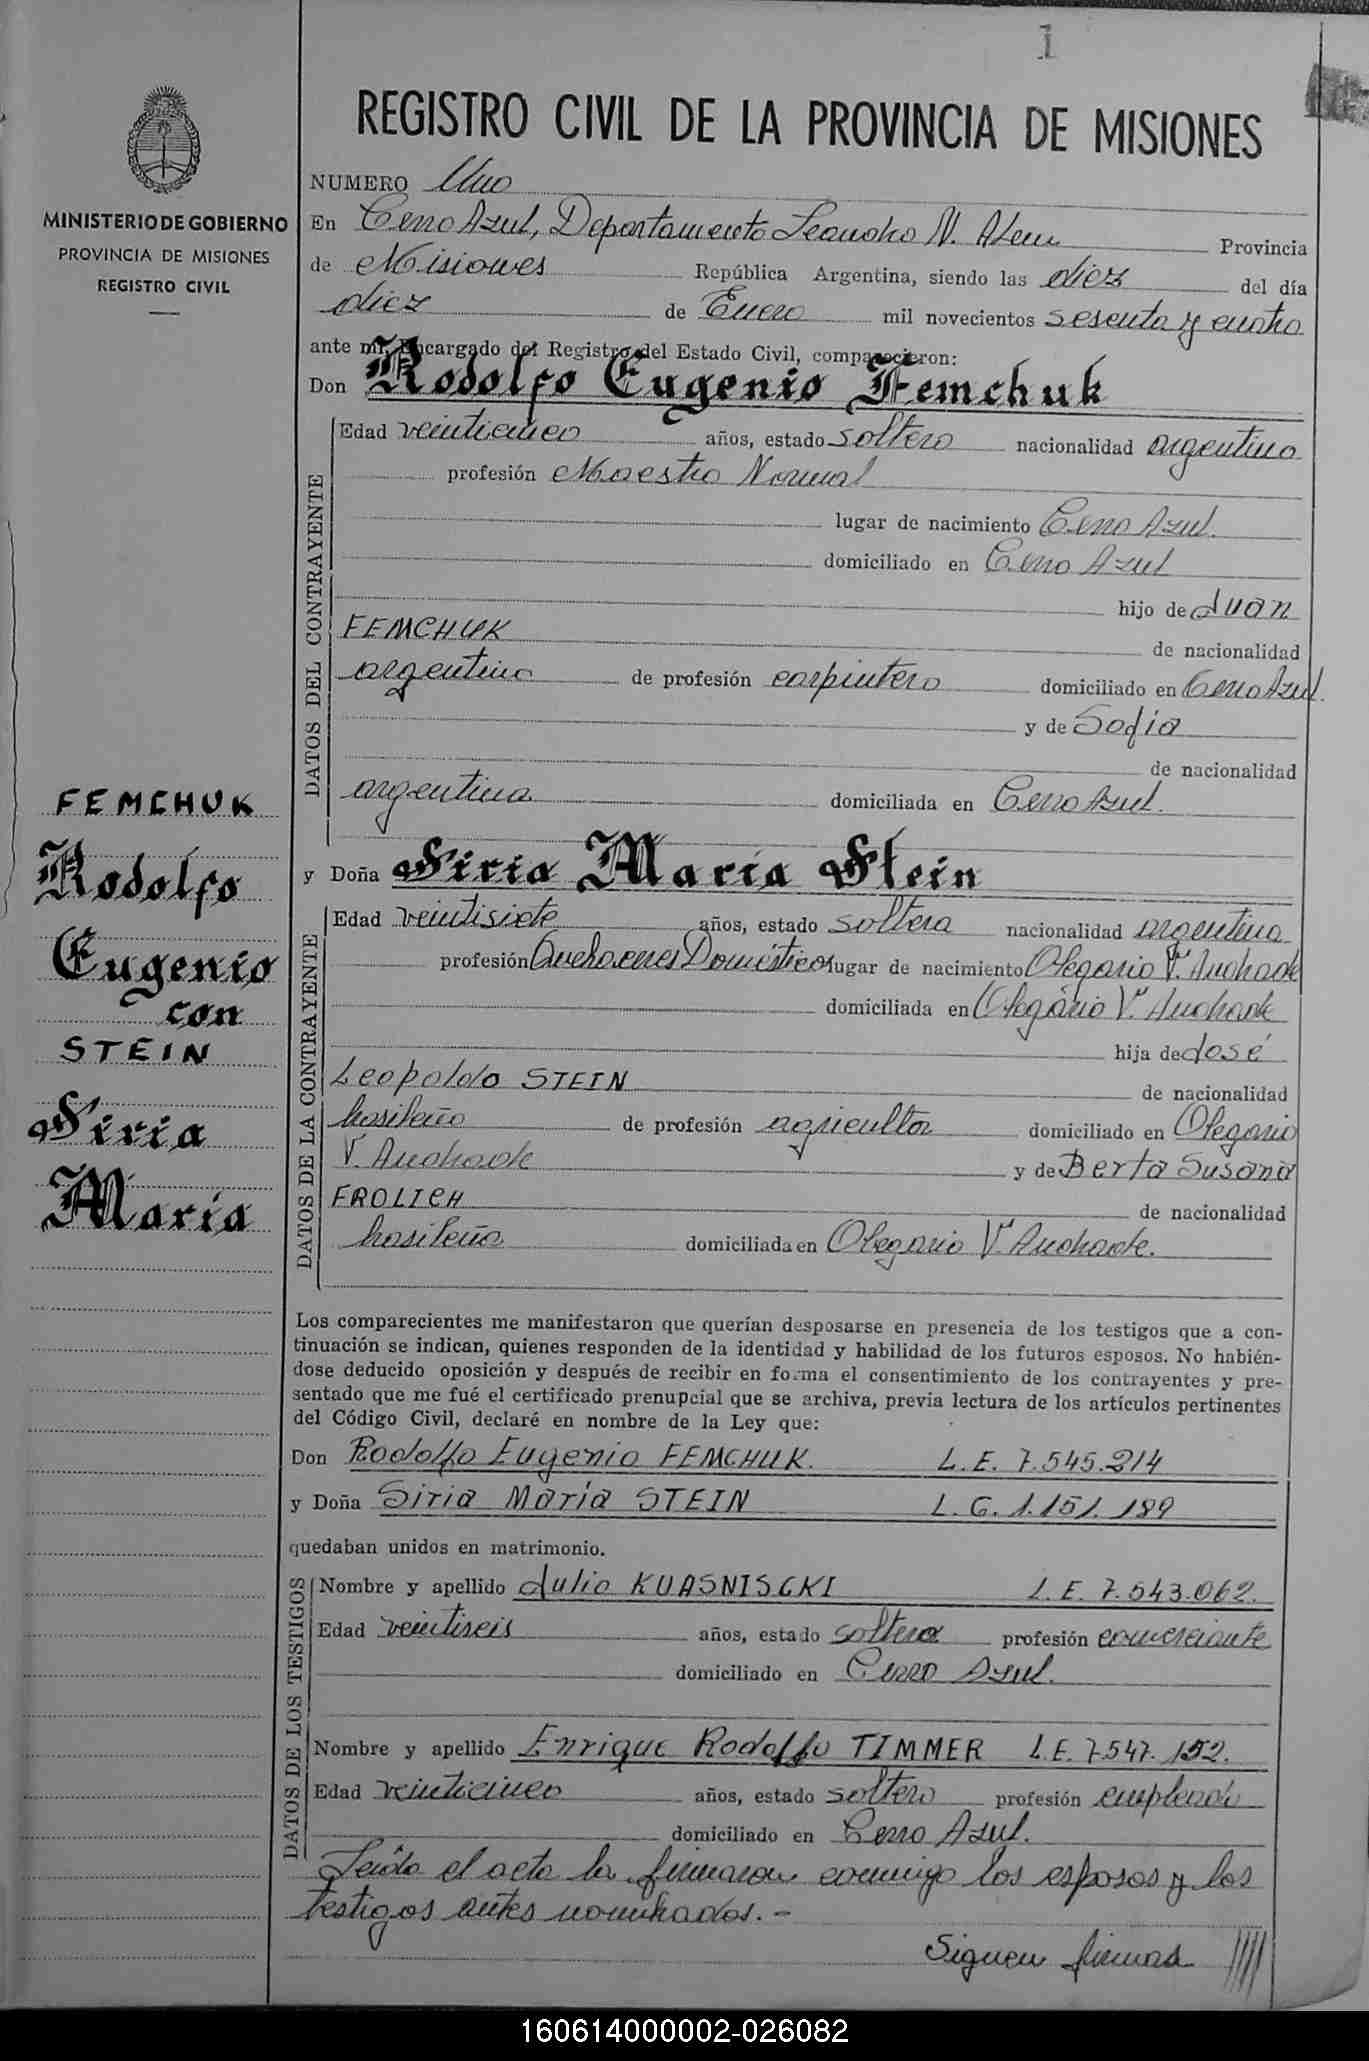 1
REGISTRO CIVIL DE LA PROVINCIA DE MISIONES
MINISTERIO DE GOBIERNO
PROVINCIA DE MISIONES
REGISTRO CIVIL
FEMCHUK
Rodolfo
Eugenio
con
STEIN
Siria
María
NUMERO Uno
En Cerro Azul, Departamento Leandro N. Alem Provincia
de Misiones República Argentina, siendo las diez del día
diez de Enero mil novecientos sesenta y cuatro
ante mí, Encargado del Registro del Estado Civil, comparecieron:
Don Rodolfo Eugenio Femchuk
DATOS DEL CONTRAYENTE
Edad veinticinco años, estado soltero nacionalidad argentino
profesión Maestro Normal
lugar de nacimiento Cerro Azul.
domiciliado en Cerro Azul
hijo de Juan
FEMCHUK de nacionalidad
argentino de profesión carpintero domiciliado en Cerro Azul.
y de Sofia
de nacionalidad
argentina domiciliada en Cerro Azul.
y Doña Siria María Stein
DATOS DE LA CONTRAYENTE
Edad veintisiete años, estado soltera nacionalidad argentina
profesión Quehaceres Domésticos lugar de nacimiento Olegario V. Andrade
domiciliada en Olegario V. Andrade
hija de José
Leopoldo STEIN de nacionalidad
brasileño de profesión agricultor domiciliado en Olegario
V. Andrade y de Berta Susana
FROLICH de nacionalidad
brasileña domiciliada en Olegario V. Andrade.
Los comparecientes me manifestaron que querían desposarse en presencia de los testigos que a con-
tinuación se indican, quienes responden de la identidad y habilidad de los futuros esposos. No habién-
dose deducido oposición y después de recibir en forma el consentimiento de los contrayentes y pre-
sentado que me fué el certificado prenupcial que se archiva, previa lectura de los artículos pertinentes
del Código Civil, declaré en nombre de la Ley que:
Don Rodolfo Eugenio FEMCHUK. L.E. 7.545.214
y Doña Siria María STEIN L.C. 1.151.189
quedaban unidos en matrimonio.
DATOS DE LOS TESTIGOS
Nombre y apellido Julio KUASNISCKI L.E. 7.543.062.
Edad veintiseis años, estado soltero profesión comerciante
domiciliado en Cerro Azul.
Nombre y apellido Enrique Rodolfo TIMMER L.E. 7.547.152.
Edad veinticinco años, estado soltero profesión empleado
domiciliado en Cerro Azul.
Leída el acta la firmaron conmigo los esposos y los
testigos antes nombrados.-
Siguen firmas ////
160614000002-026082